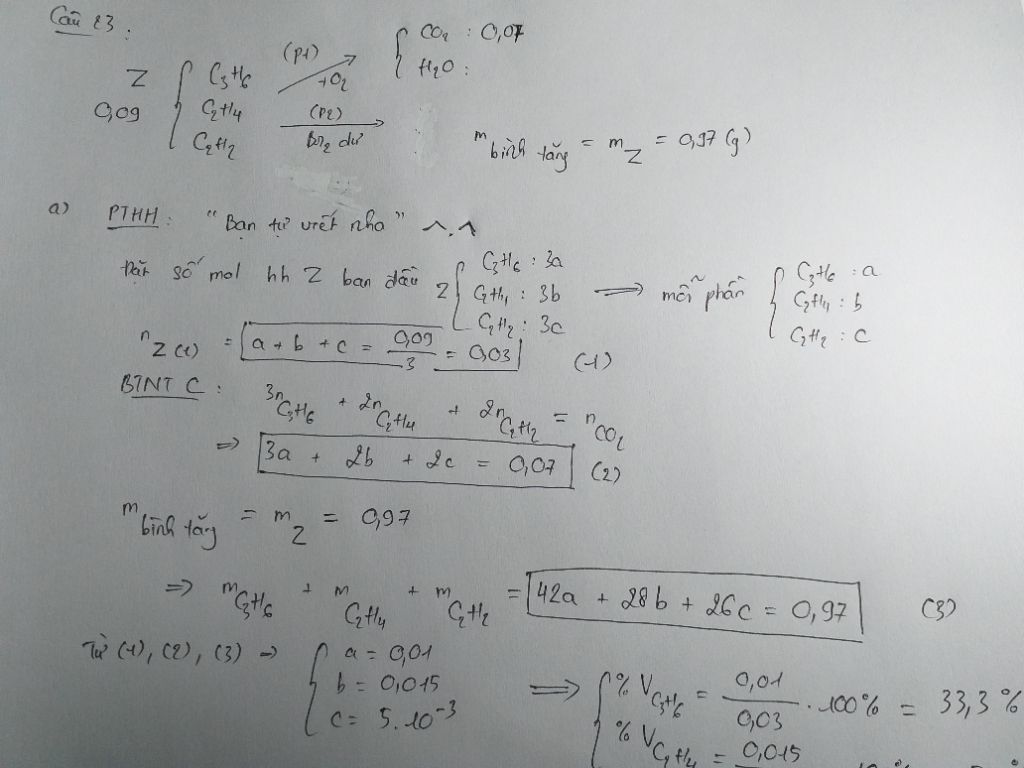 Câu 23 :
Z 0,09 { C3H6 C2H4 C2H2
(P1) +O2 { CO2 : 0,07 H2O :
(P2) Br2 dư
m bình tăng = mZ = 0,97 (g)
a) PTHH : "Bạn tự viết nha" ^.^
Đặt số mol hh Z ban đầu Z { C3H6 : 3a C2H4 : 3b C2H2 : 3c => mỗi phần { C3H6 : a C2H4 : b C2H2 : c
nZ(1) = a + b + c = 0,09/3 = 0,03 (1)
BTNT C : 3nC3H6 + 2nC2H4 + 2nC2H2 = nCO2
=> 3a + 2b + 2c = 0,07 (2)
m bình tăng = mZ = 0,97
=> mC3H6 + mC2H4 + mC2H2 = 42a + 28b + 26c = 0,97 (3)
Từ (1), (2), (3) => { a = 0,01 b = 0,015 c = 5.10^-3 => { %VC3H6 = 0,01/0,03 . 100% = 33,3 %
%VC2H4 = 0,015